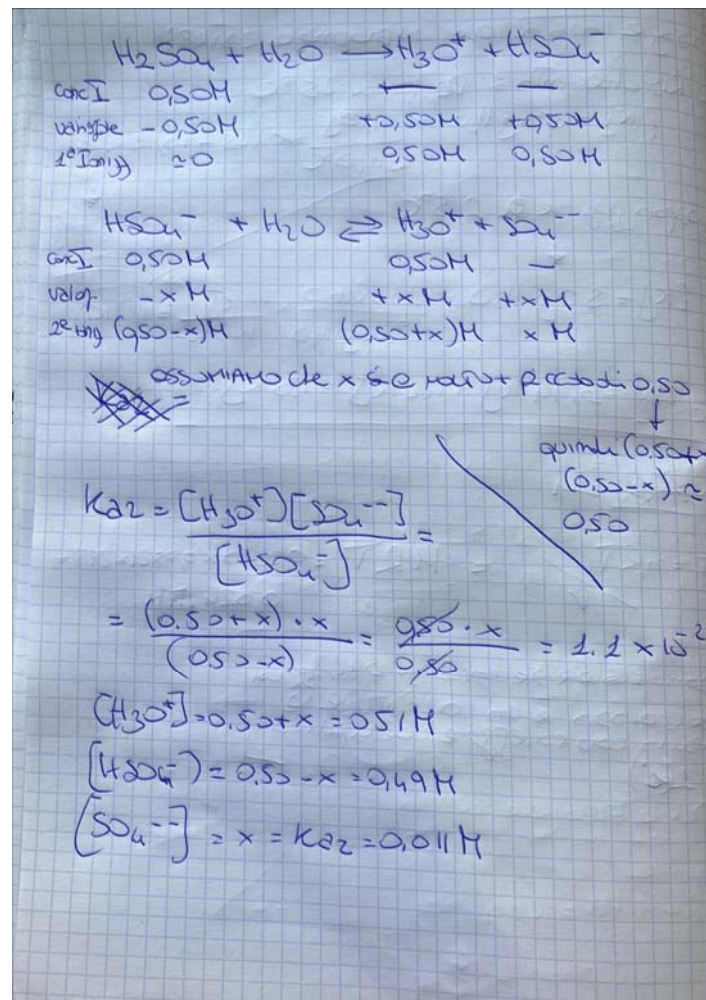 H₂SO₄ + H₂O ⟶ H₃O⁺ + HSO₄⁻
conc I 0,50M — —
-0,50M +0,50M +0,50M
1ª ≃0 0,50M 0,50M
HSO₄⁻ + H₂O ⇌ H₃O⁺ + SO₄⁻⁻
conc I 0,50M 0,50M —
-x M +x M +x M
2ª (0,50-x)M (0,50+x)M x M
ASSUMIAMO che x di 0,50
↓
quindi (0.50+x
(0.50-x) ≃
0,50
Ka2 = [H₃O⁺][SO₄⁻⁻] / [HSO₄⁻] =
= (0.50+x)·x / (0.50-x) = 0,50·x / 0,50 = 1.1 × 10⁻²
[H₃O⁺] = 0.50+x = 0,51M
[HSO₄⁻] = 0.50-x = 0,49M
[SO₄⁻⁻] = x = Ka2 = 0,011M